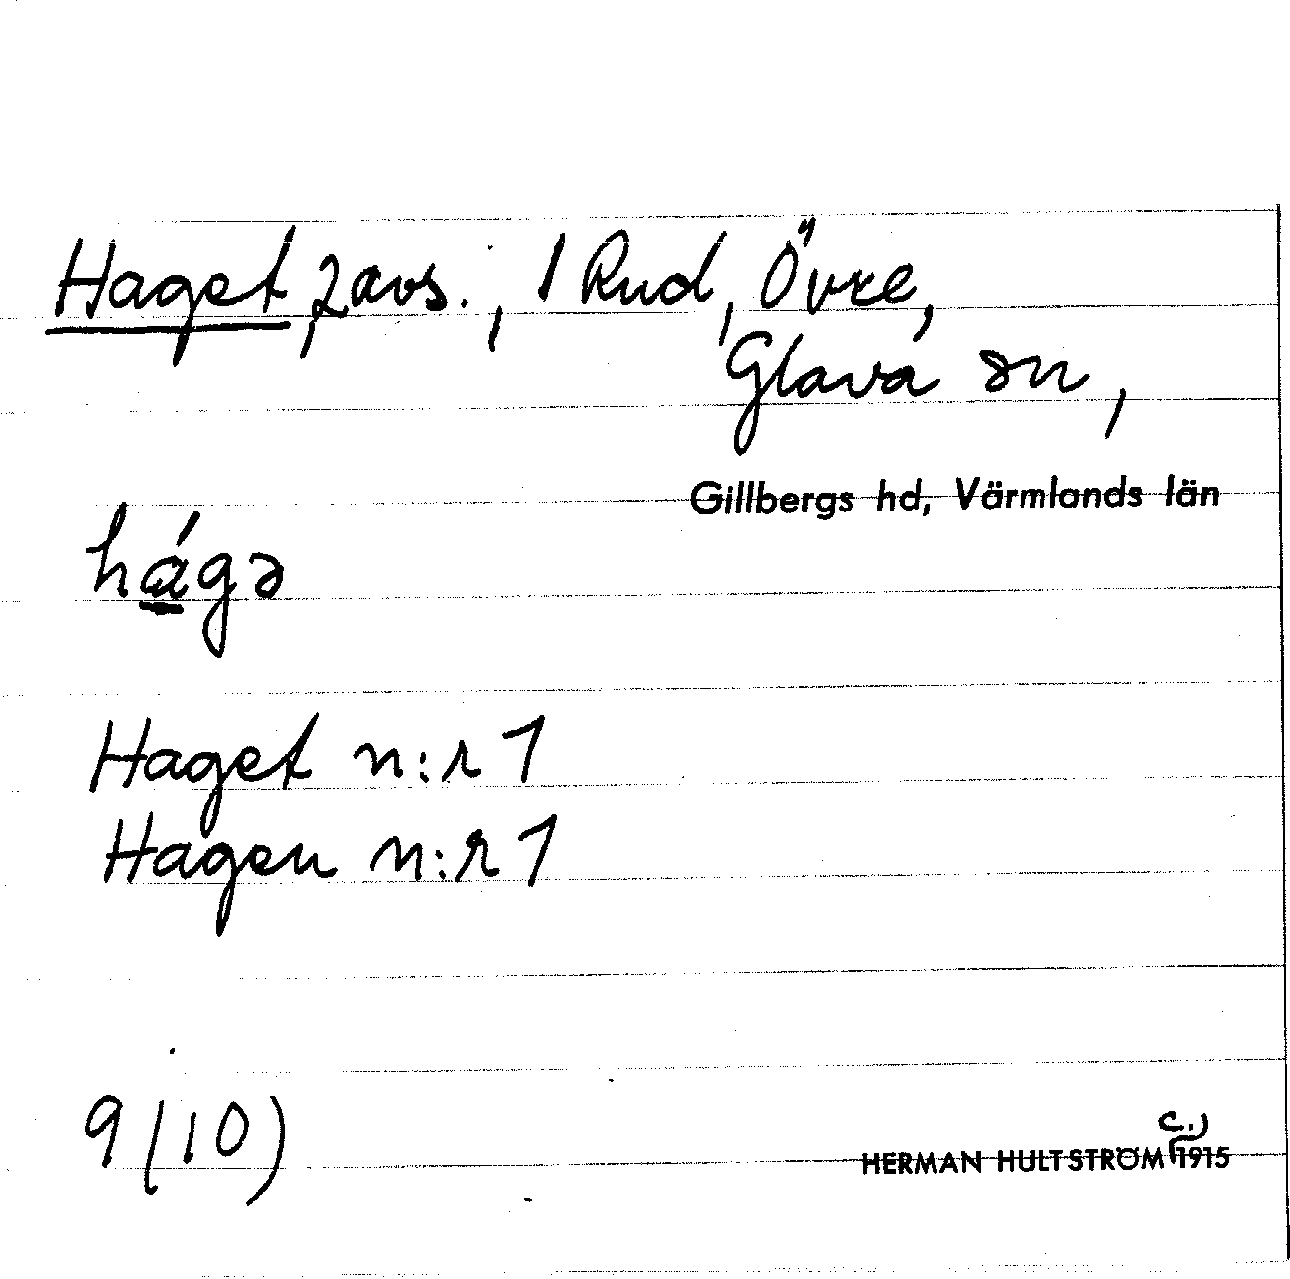 Haget, 2 avs., 1 Rud, Övre,
Glava sn,
Gillbergs hd, Värmlands län
hágə
Haget n:r 1
Hagen n:r 1
9 (10)
HERMAN HULTSTRÖM c. 1915